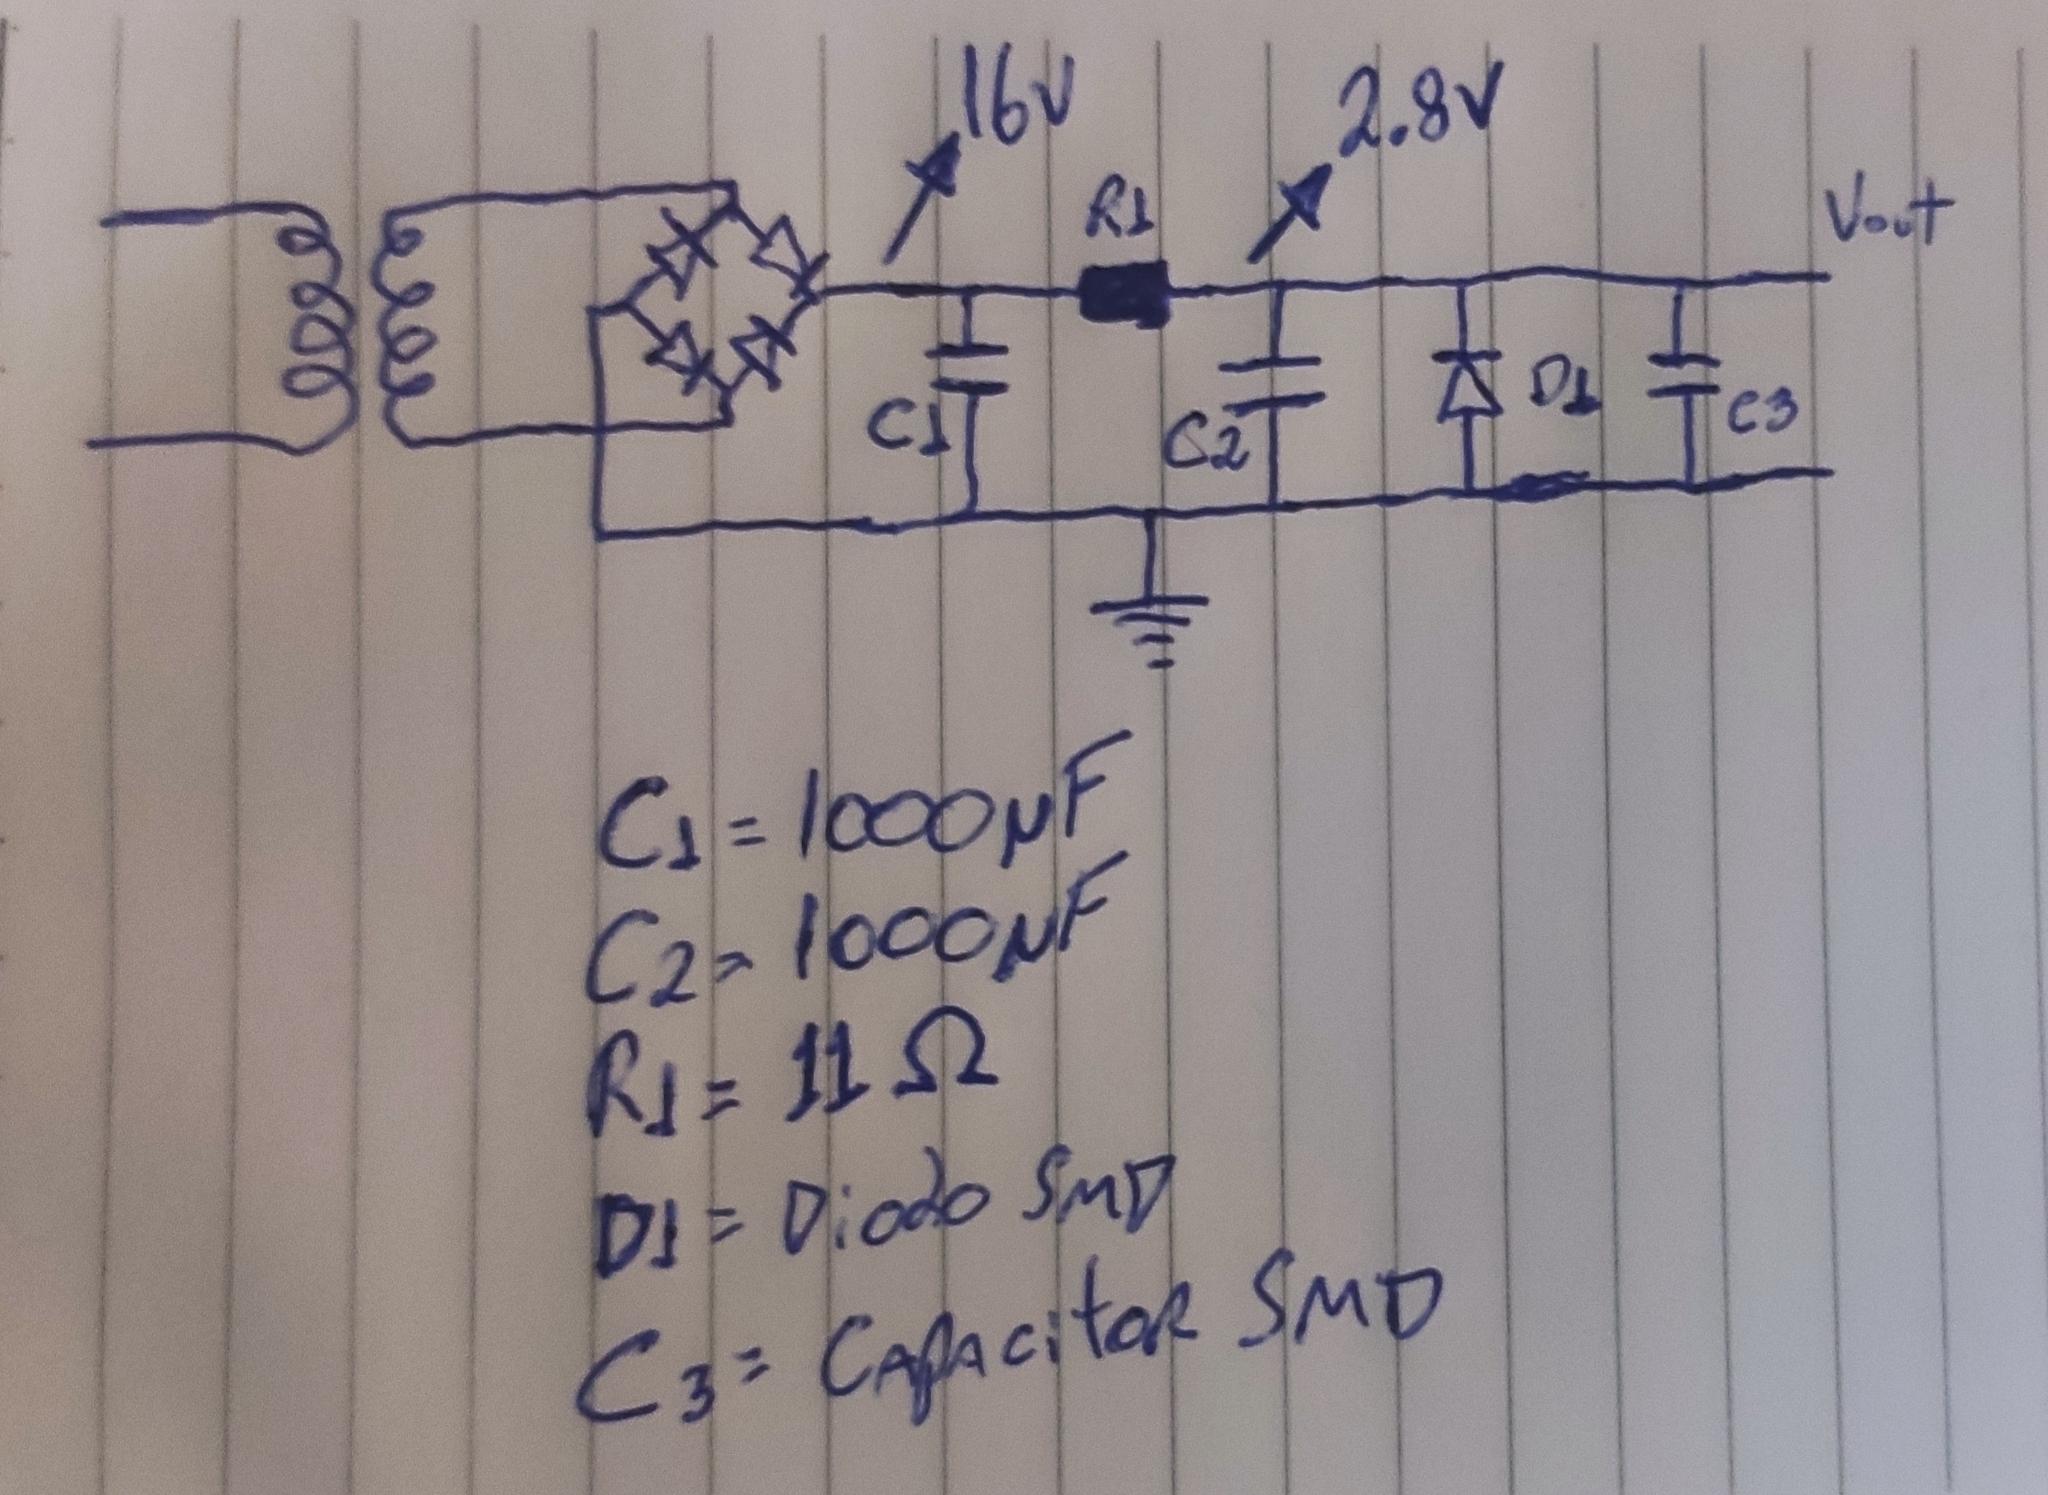 16V
2.8V
R1
Vout
C1
C2
D1
C3
C1 = 1000µF
C2 = 1000µF
R1 = 11 Ω
D1 = Diodo SMD
C3 = Capacitor SMD